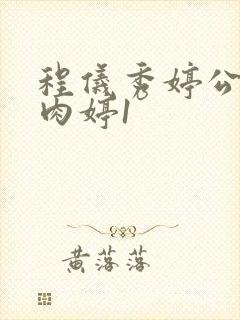 程仪秀婷公
肉婷1
黄落落